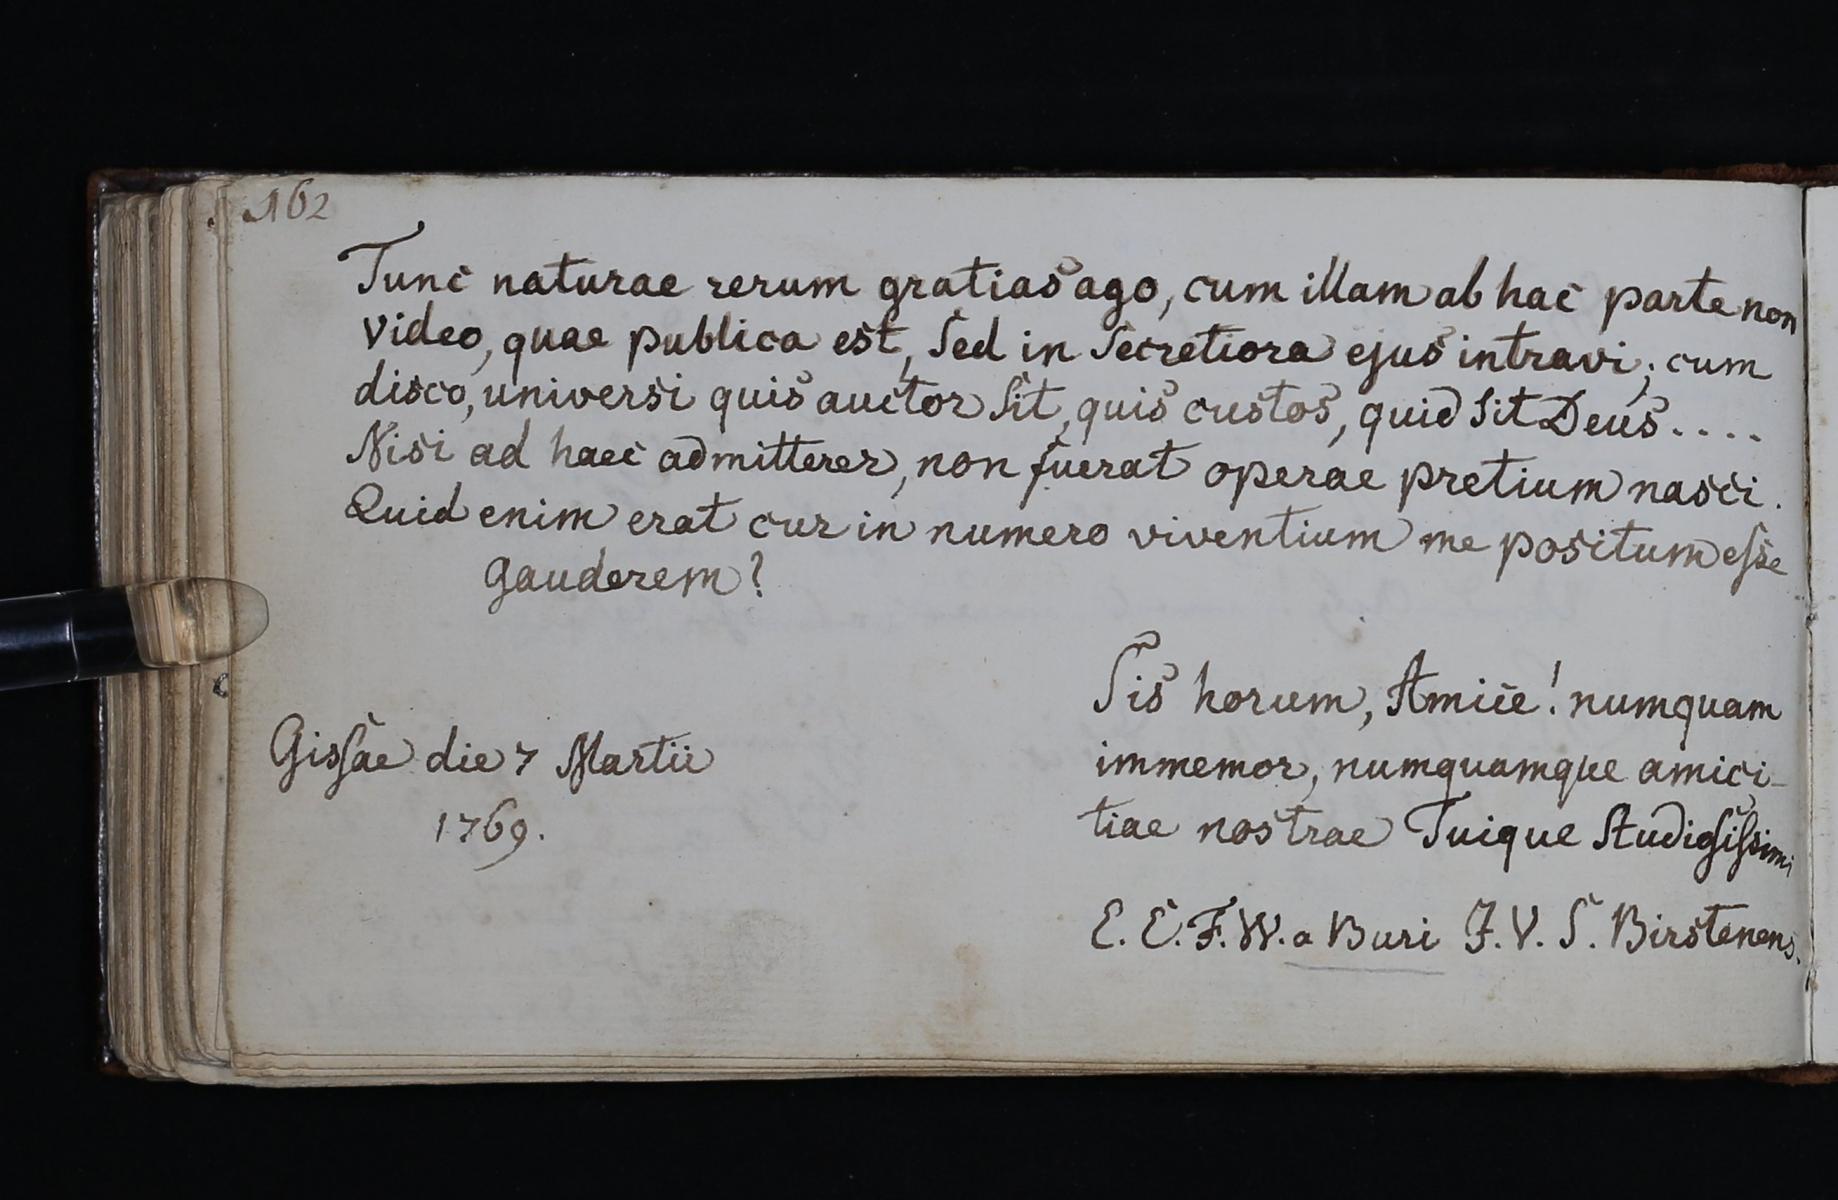 162
Tunc naturae rerum gratias ago, cum illam ab hac parte non
video, quae publica est, sed in secretiora ejus intravi; cum
disco, universi quis auctor sit, quis custos, quid sit Deus....
Nisi ad haec admitterer, non fuerat operae pretium nasci.
Quid enim erat cur in numero viventium me positum esse
gauderem?
Sis horum, Amice! numquam
immemor, numquamque amici-
tiae nostrae Tuique studiosissimi
E. E. F. W. a Buri J. V. S. Birstenens.
Gissae die 7 Martii
1769.